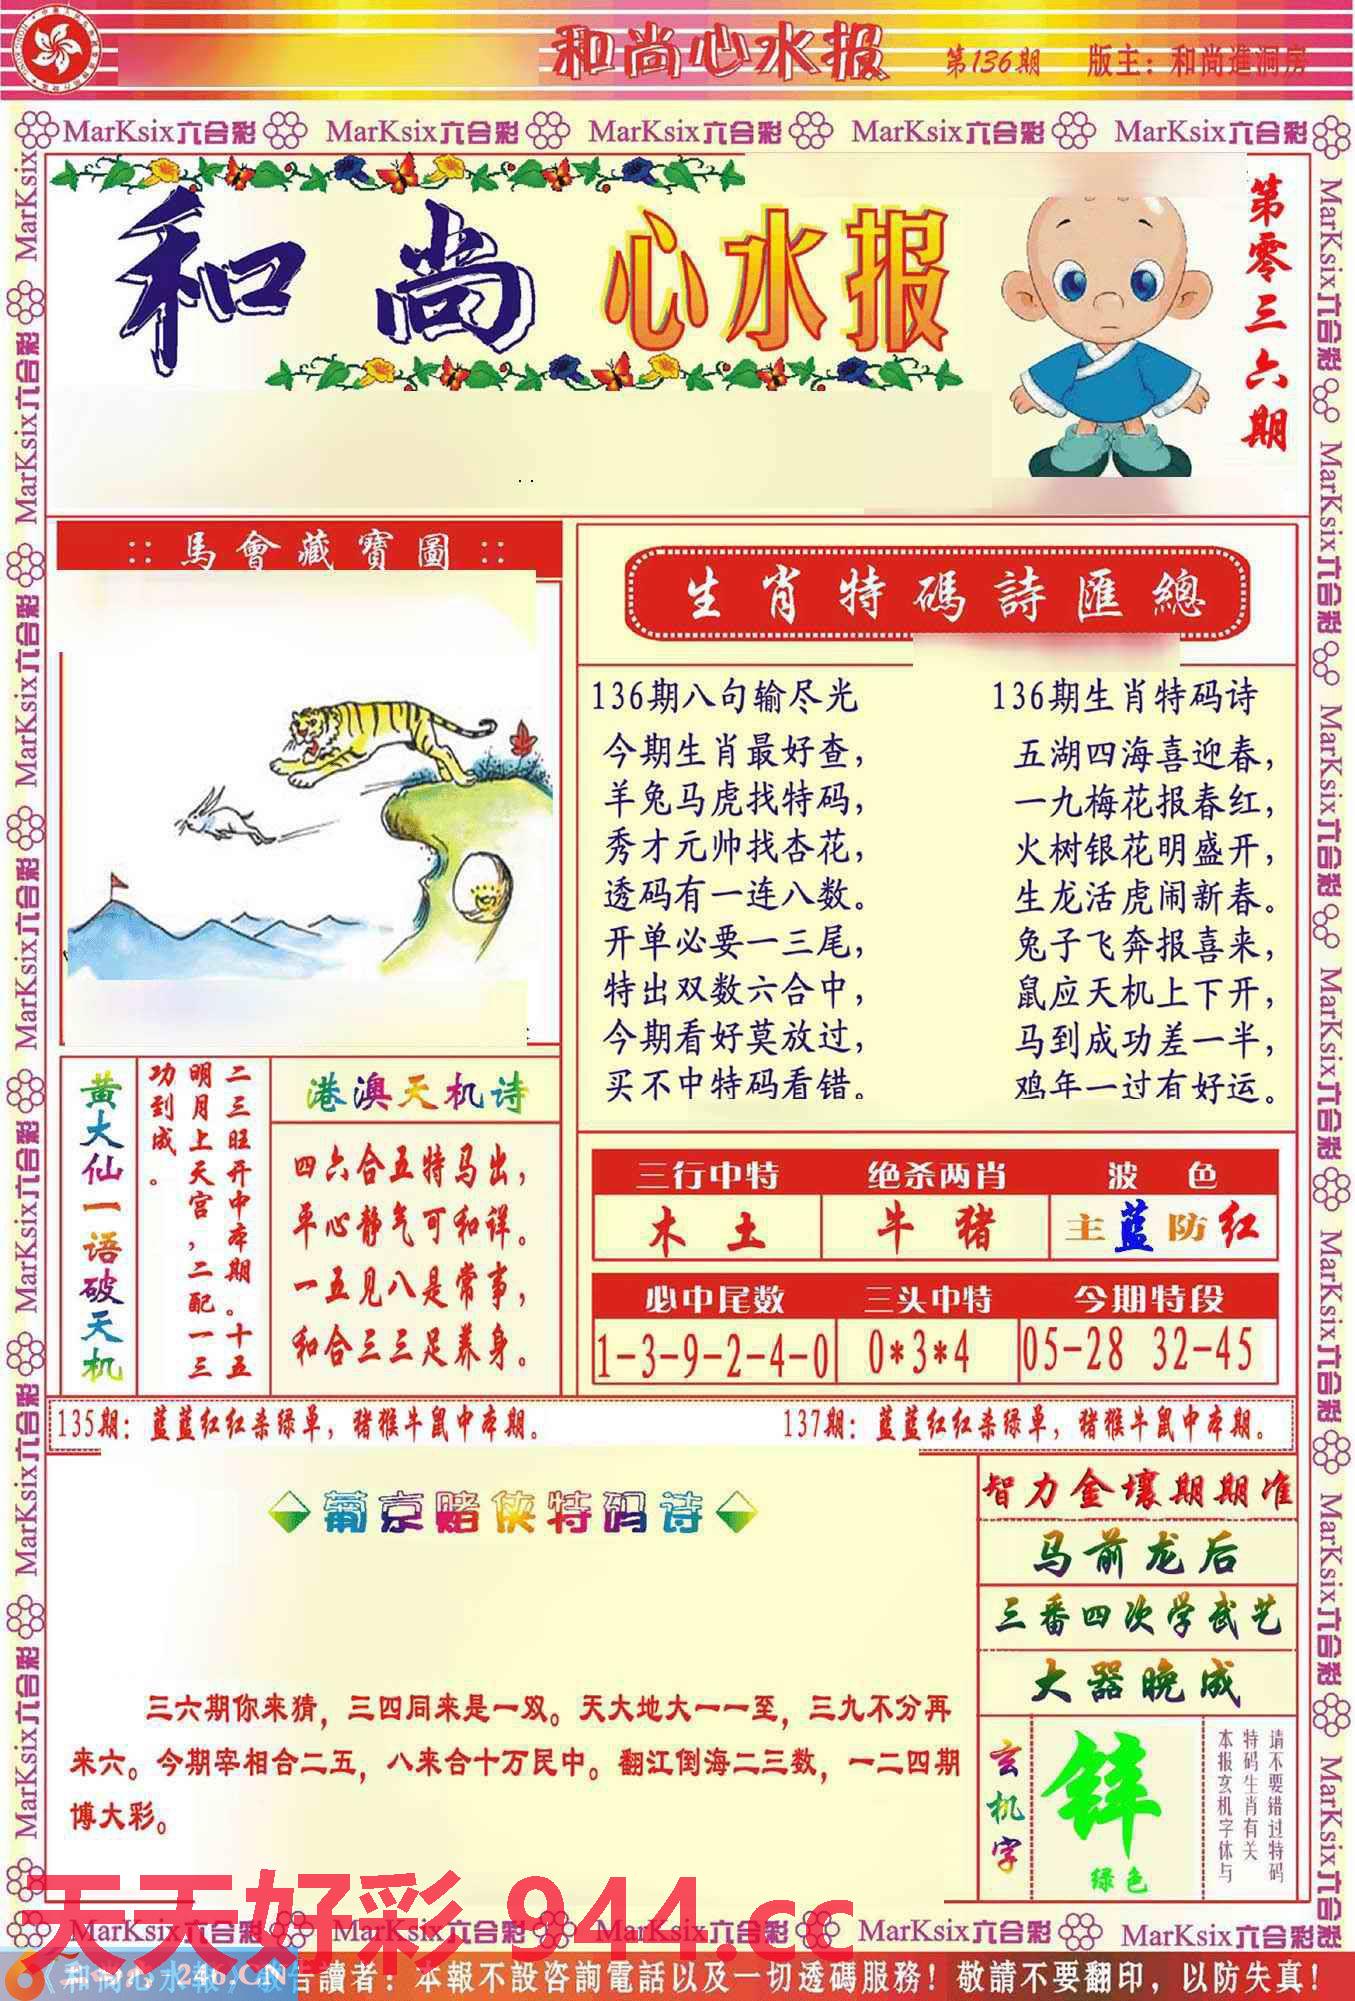 和尚心水报
第136期
版主：和尚進洞房
MarKsix六合彩 MarKsix六合彩 MarKsix六合彩 MarKsix六合彩 MarKsix六合彩
和尚心水报
第零三六期
::馬會藏寶圖::
生肖特碼詩匯總
136期八句输尽光
今期生肖最好查，
羊兔马虎找特码，
秀才元帅找杏花，
透码有一连八数。
开单必要一三尾，
特出双数六合中，
今期看好莫放过，
买不中特码看错。
136期生肖特码诗
五湖四海喜迎春，
一九梅花报春红，
火树银花明盛开，
生龙活虎闹新春。
兔子飞奔报喜来，
鼠应天机上下开，
马到成功差一半，
鸡年一过有好运。
黄大仙一语破天机
二三旺开中本期。十五
明月上天宫，二配一三
功到成。
港澳天机诗
四六合五特马出，
平心静气可和详。
一五见八是常事，
和合三三足养身。
三行中特 绝杀两肖 波色
木土 牛猪 主蓝防红
必中尾数 三头中特 今期特段
1-3-9-2-4-0 0*3*4 05-28 32-45
135期：蓝蓝红红杀绿单，猪猴牛鼠中本期。
137期：蓝蓝红红杀绿单，猪猴牛鼠中本期。
葡京赌侠特码诗
三六期你来猜，三四同来是一双。天大地大一一至，三九不分再
来六。今期宰相合二五，八来合十万民中。翻江倒海二三数，一二四期
博大彩。
智力金壤期期准
马前龙后
三番四次学武艺
大器晚成
玄机字
锌
绿色
请不要错过特码
特码生肖有关
本报玄机字体与
天天好彩 944.cc
MarKsix六合彩 MarKsix六合彩 MarKsix六合彩 MarKsix六合彩 MarKsix六合彩
《和尚心水報》敬告讀者：本報不設咨詢電話以及一切透碼服務！敬請不要翻印，以防失真！
246.CN